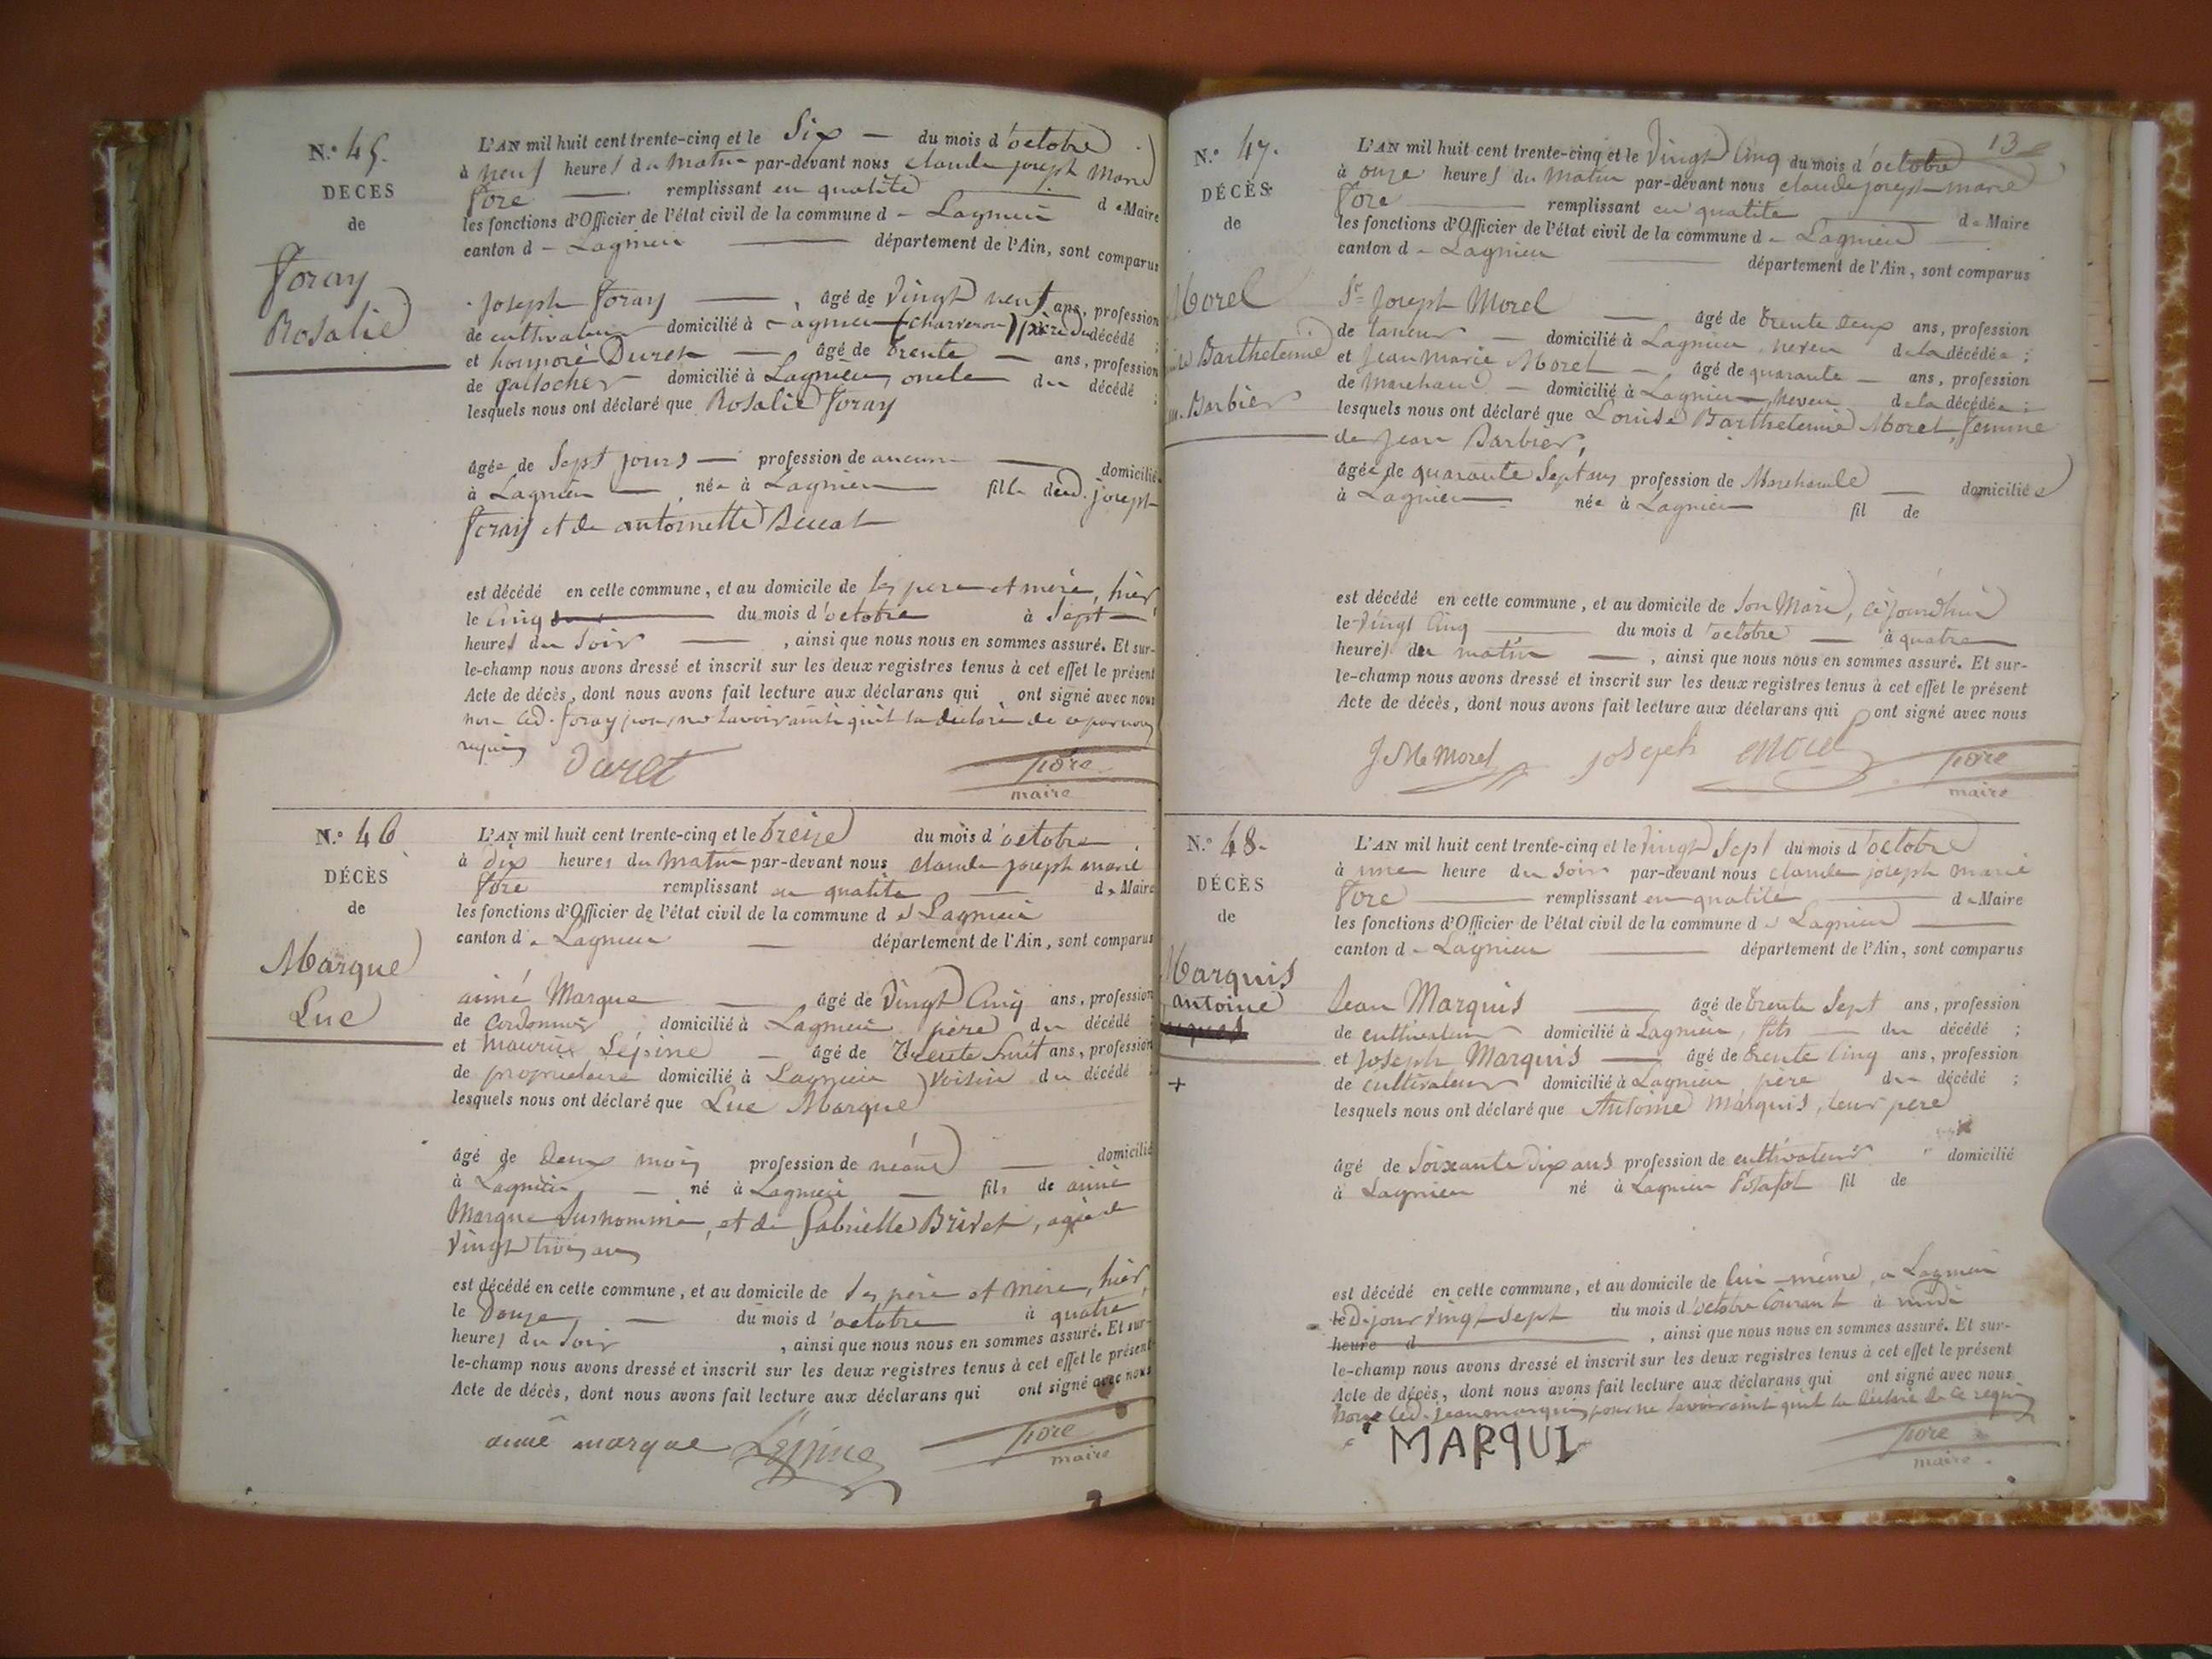 N.º 45.
DECES
de
Foray
Rosalie
L'AN mil huit cent trente-cinq et le Six — du mois d'octobre
à neuf heures du Matin par-devant nous claude joseph Marie
fore — remplissant en qualité — de Maire
les fonctions d'Officier de l'état civil de la commune de Lagnieu
canton de Lagnieu — département de l'Ain, sont comparus
Joseph foray — , âgé de Vingt neuf ans, profession
de cultivateur domicilié à Lagnieu (charveron) père du décédé ;
et honnoré Duret — âgé de trente — ans, profession
de galocher domicilié à Lagnieu, oncle du décédé ;
lesquels nous ont déclaré que Rosalie foray
âgée de Sept jours — profession de aucune — domicilié
à Lagnieu — , née à Lagnieu fille dud. joseph
foray et de antoinette
est décédé en cette commune, et au domicile de ses pere et mère, hier
le Cinq — du mois d'octobre à Sept
heures du Soir — , ainsi que nous nous en sommes assuré. Et sur-
le-champ nous avons dressé et inscrit sur les deux registres tenus à cet effet le présent
Acte de décès, dont nous avons fait lecture aux déclarans qui ont signé avec nous
non led. foray pour ne savoir ainsi qu'il l'a déclaré de ce par nous
requis
Duret fore
maire
N.º 46
DÉCÈS
de
Marque
Luc
L'AN mil huit cent trente-cinq et le treize du mois d'octobre
à dix heures du Matin par-devant nous claude joseph marie
fore remplissant en qualité — de Maire
les fonctions d'Officier de l'état civil de la commune de Lagnieu
canton de Lagnieu — département de l'Ain, sont comparus
aimé Marque — âgé de Vingt Cinq ans, profession
de Cordonnier, domicilié à Lagnieu père du décédé ;
et Maurice Lépine — âgé de trente huit ans, profession
de propriétaire domicilié à Lagnieu, Voisin du décédé ;
lesquels nous ont déclaré que Luc Marque
âgé de deux mois profession de néant — domicilié
à Lagnieu — né à Lagnieu — fils de aimé
Marque Susnommé, et de Gabrielle Brivet, agée de
Vingt trois ans
est décédé en cette commune, et au domicile de Ses père et mère, hier,
le douze — du mois d'octobre à quatre
heures du Soir , ainsi que nous nous en sommes assuré. Et sur-
le-champ nous avons dressé et inscrit sur les deux registres tenus à cet effet le présent
Acte de décès, dont nous avons fait lecture aux déclarans qui ont signé avec nous
aimé marque Lépine fore
maire
13
N.º 47.
DÉCÈS
de
Morel
Barthelemie
Barbier
L'AN mil huit cent trente-cinq et le Vingt Cinq du mois d'octobre
à onze heures du Matin par-devant nous claude joseph marie
fore — remplissant en qualité — de Maire
les fonctions d'Officier de l'état civil de la commune de Lagnieu
canton de Lagnieu — département de l'Ain, sont comparus
Sr Joseph Morel — âgé de trente deux ans, profession
de taneur — domicilié à Lagnieu, neveu de la décédée ;
et Jean Marie Morel — âgé de quarante — ans, profession
de Marchand — domicilié à Lagnieu, neveu de la décédée ;
lesquels nous ont déclaré que Louise Barthelemie Morel, femme
de Jean Barbier,
âgée de quarante Sept ans profession de Marchande — domiciliée
à Lagnieu née à Lagnieu fil de
est décédé en cette commune, et au domicile de Son Mari, cejourd'hui
le Vingt Cinq — du mois d'octobre — à quatre
heures du matin — , ainsi que nous nous en sommes assuré. Et sur-
le-champ nous avons dressé et inscrit sur les deux registres tenus à cet effet le présent
Acte de décès, dont nous avons fait lecture aux déclarans qui ont signé avec nous
J M Morel joseph morel fore
maire
N.º 48.
DÉCÈS
de
Marquis
antoine
L'AN mil huit cent trente-cinq et le Vingt Sept du mois d'octobre
à une heure du Soir par-devant nous claude joseph marie
fore — remplissant en qualité — de Maire
les fonctions d'Officier de l'état civil de la commune de Lagnieu —
canton de Lagnieu — département de l'Ain, sont comparus
Jean Marquis — âgé de trente Sept ans, profession
de cultivateur domicilié à Lagnieu, fils — du décédé ;
et Joseph Marquis — âgé de trente Cinq ans, profession
de cultivateur domicilié à Lagnieu, père du décédé ;
lesquels nous ont déclaré que Antoine Marquis, leur pere
âgé de Soixante Dix ans profession de cultivateur domicilié
à Lagnieu né à Lagnieu fil de
est décédé en cette commune, et au domicile de lui-même, a Lagnieu
led. jour Vingt Sept du mois d'octobre Courant à midi
heure d — , ainsi que nous nous en sommes assuré. Et sur-
le-champ nous avons dressé et inscrit sur les deux registres tenus à cet effet le présent
Acte de décès, dont nous avons fait lecture aux déclarans qui ont signé avec nous
non led. jean marquis pour ne savoir ainsi qu'il l'a déclaré de ce requis
MARQUI fore
maire